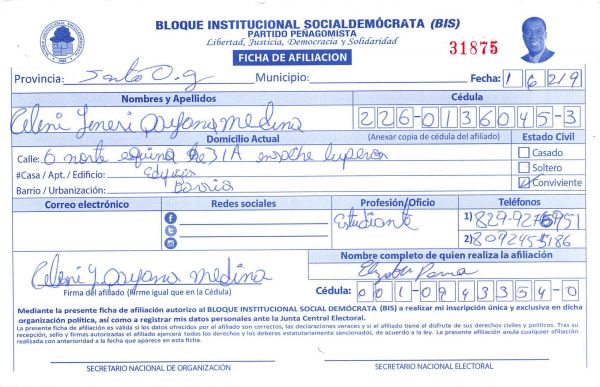 BLOQUE INSTITUCIONAL SOCIALDEMÓCRATA (BIS)
PARTIDO PEÑAGOMISTA
Libertad, Justicia, Democracia y Solidaridad
31875
FICHA DE AFILIACION
Provincia: Santo D. g Municipio: Fecha: 1 6 2 19
Nombres y Apellidos Cédula
Celeni Yeneri Payana Medina 226-0136045-3
Domicilio Actual (Anexar copia de cédula del afiliado) Estado Civil
Calle: 6 norte esquina 31A enrache luperon Casado
#Casa / Apt. / Edificio: Soltero
Barrio / Urbanización: Barrio Conviviente
Correo electrónico Redes sociales Profesión/Oficio Teléfonos
Estudiante 1) 829-927
2) 8092455186
Nombre completo de quien realiza la afiliación
Celeni Y. Payana Medina
Firma del afiliado (Firme igual que en la Cédula) Cédula: 001-0943354-0
Mediante la presente ficha de afiliación autorizo al BLOQUE INSTITUCIONAL SOCIAL DEMÓCRATA (BIS) a realizar mi inscripción única y exclusiva en dicha
organización política, así como a registrar mis datos personales ante la Junta Central Electoral.
La presente ficha de afiliación es válida si los datos ofrecidos por el afiliado son correctos, las declaraciones veraces y si el afiliado tiene el disfrute de sus derechos civiles y políticos. Tras su
recepción, sello y firmas autorizadas el afiliado ejercerá todos los derechos y los deberes estatutariamente sancionados, de acuerdo a la ley. La presente afiliación anula cualquier afiliación
realizada con anterioridad a la fecha que aparece en esta ficha.
SECRETARIO NACIONAL DE ORGANIZACIÓN SECRETARIO NACIONAL ELECTORAL